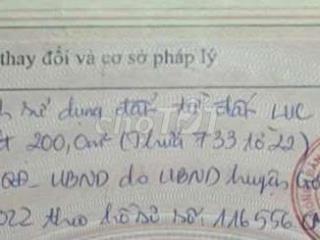 thay đổi và cơ sở pháp lý
sử dụng đất từ đất LUC
200,0m² (Thửa 733 tờ 22)
QĐ_UBND do UBND huyện
022 theo hồ sơ số: 116556.